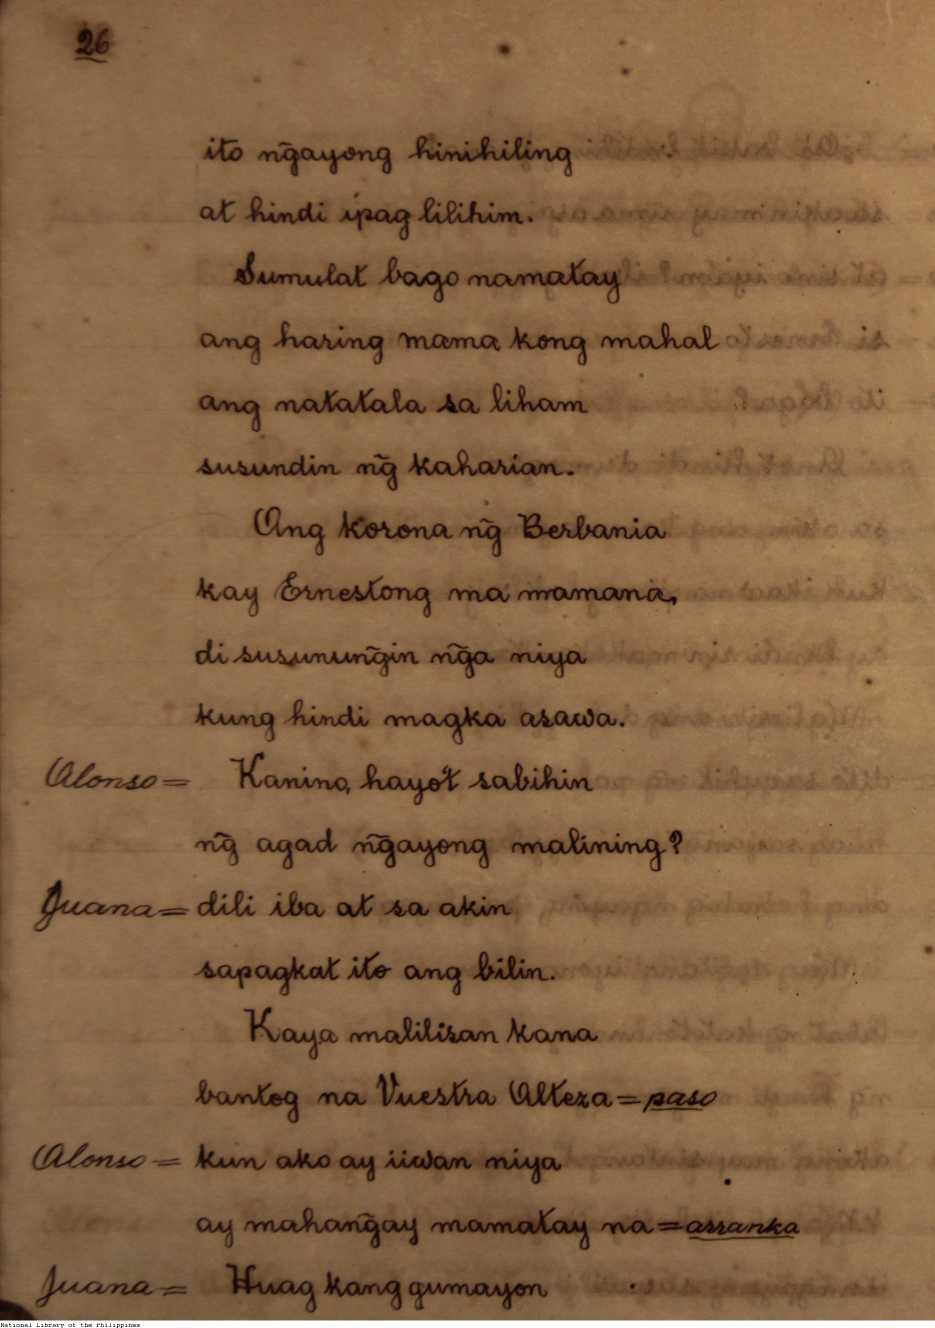 26
ito ng̃ayong hinihiling
at hindi ipag lilihim.
Sumulat bago namatay
ang haring mama kong mahal
ang natatala sa liham
susundin ng̃ kaharian.
Ang korona ng̃ Berbania
kay Ernestong ma mamana,
di susunung̃in ng̃a niya
kung hindi magka asawa.
Alonso = Kanino, hayo't sabihin
ng̃ agad ng̃ayong malining?
Juana = dili iba at sa akin
sapagkat ito ang bilin.
Kaya malilisan kana
bantog na Vuestra Alteza = paso
Alonso = kun ako ay iiwan niya
ay mahang̃ay mamatay na = arranka
Juana = Huag kang gumayon
National Library of the Philippines